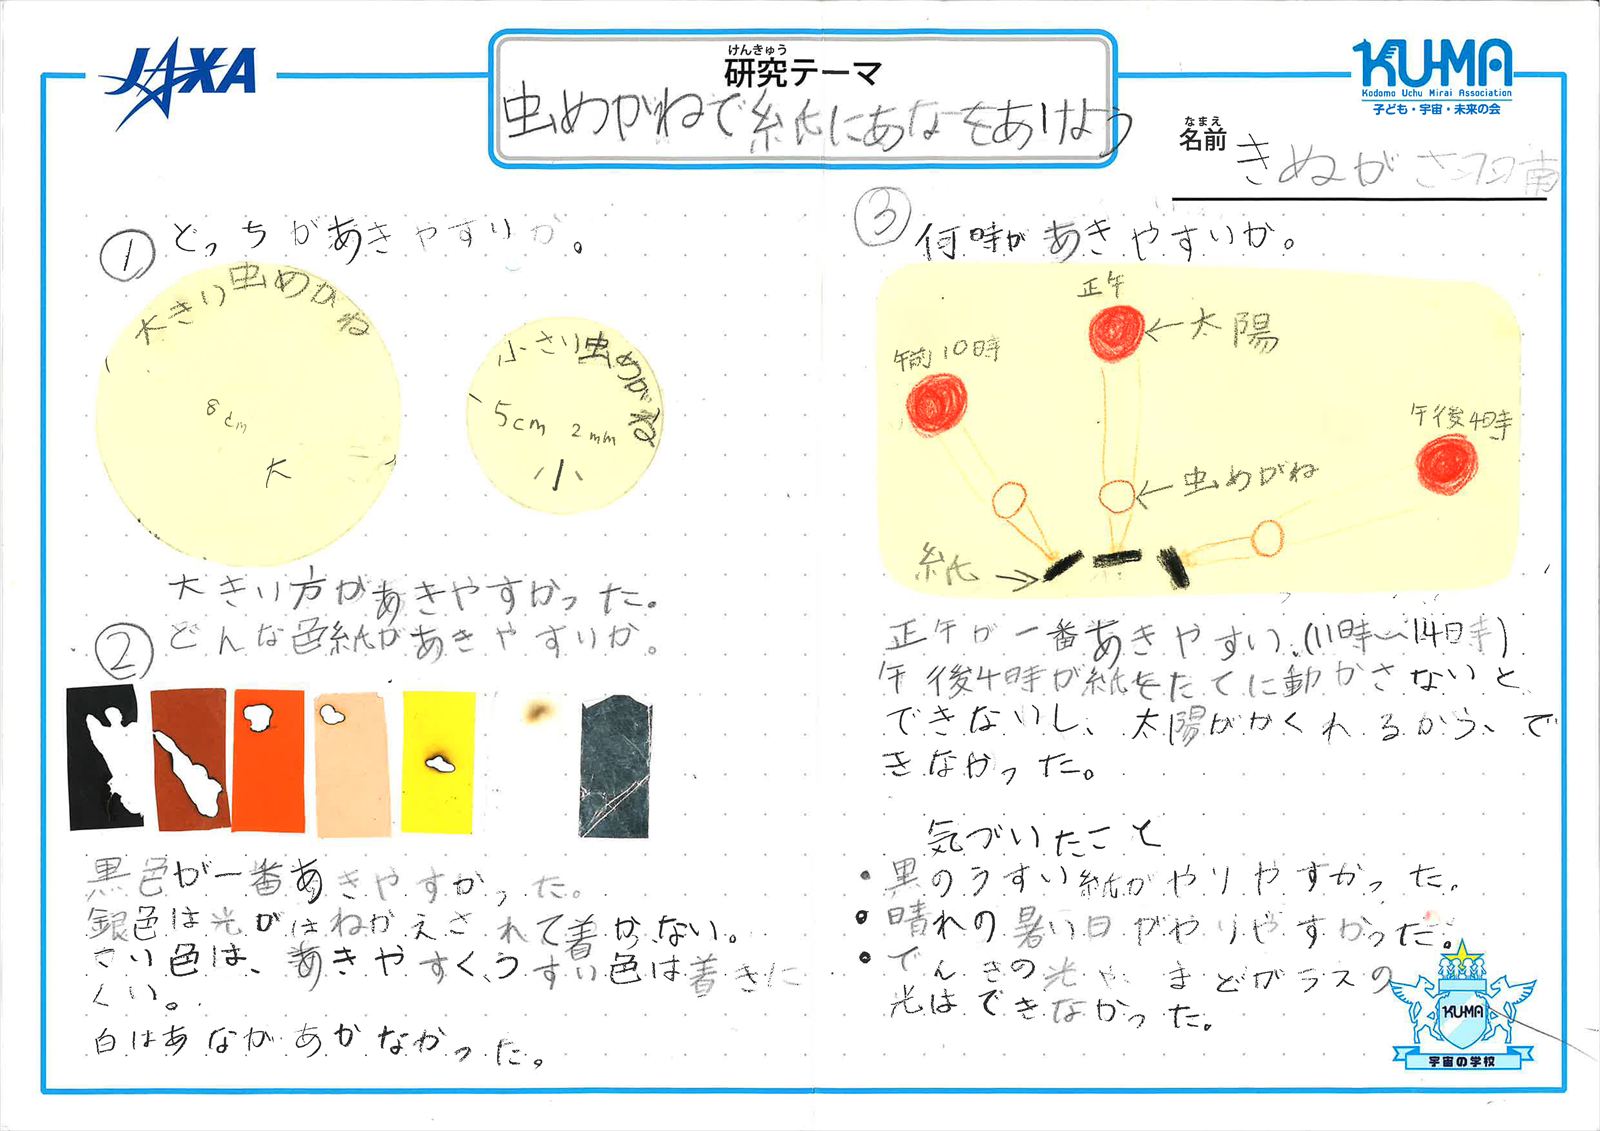 JAXA
けんきゅう
研究テーマ
虫めがねで紙にあなをあけよう
KU-MA
Kodomo Uchu Mirai Association
子ども・宇宙・未来の会
なまえ
名前
きぬがさ
① どっちがあきやすいか。
大きい虫めがね
8cm
大
小さい虫めがね
5cm 2mm
小
大きい方があきやすかった。
② どんな色紙があきやすいか。
黒色が一番あきやすかった。
銀色は光がはねかえされて着かない。
こい色は、あきやすく、うすい色は着きに
くい。
白はあながあかなかった。
③ 何時があきやすいか。
正午
←太陽
午前10時
午後4時
←虫めがね
紙→
正午が一番あきやすい。(11時〜14時)
午後4時が紙をたてに動かさないと
できないし、太陽がかくれるから、で
きなかった。
気づいたこと
・黒のうすい紙がやりやすかった。
・晴れの暑い日がやりやすかった。
・でんきの光や、まどガラスの
光はできなかった。
KU-MA
宇宙の学校